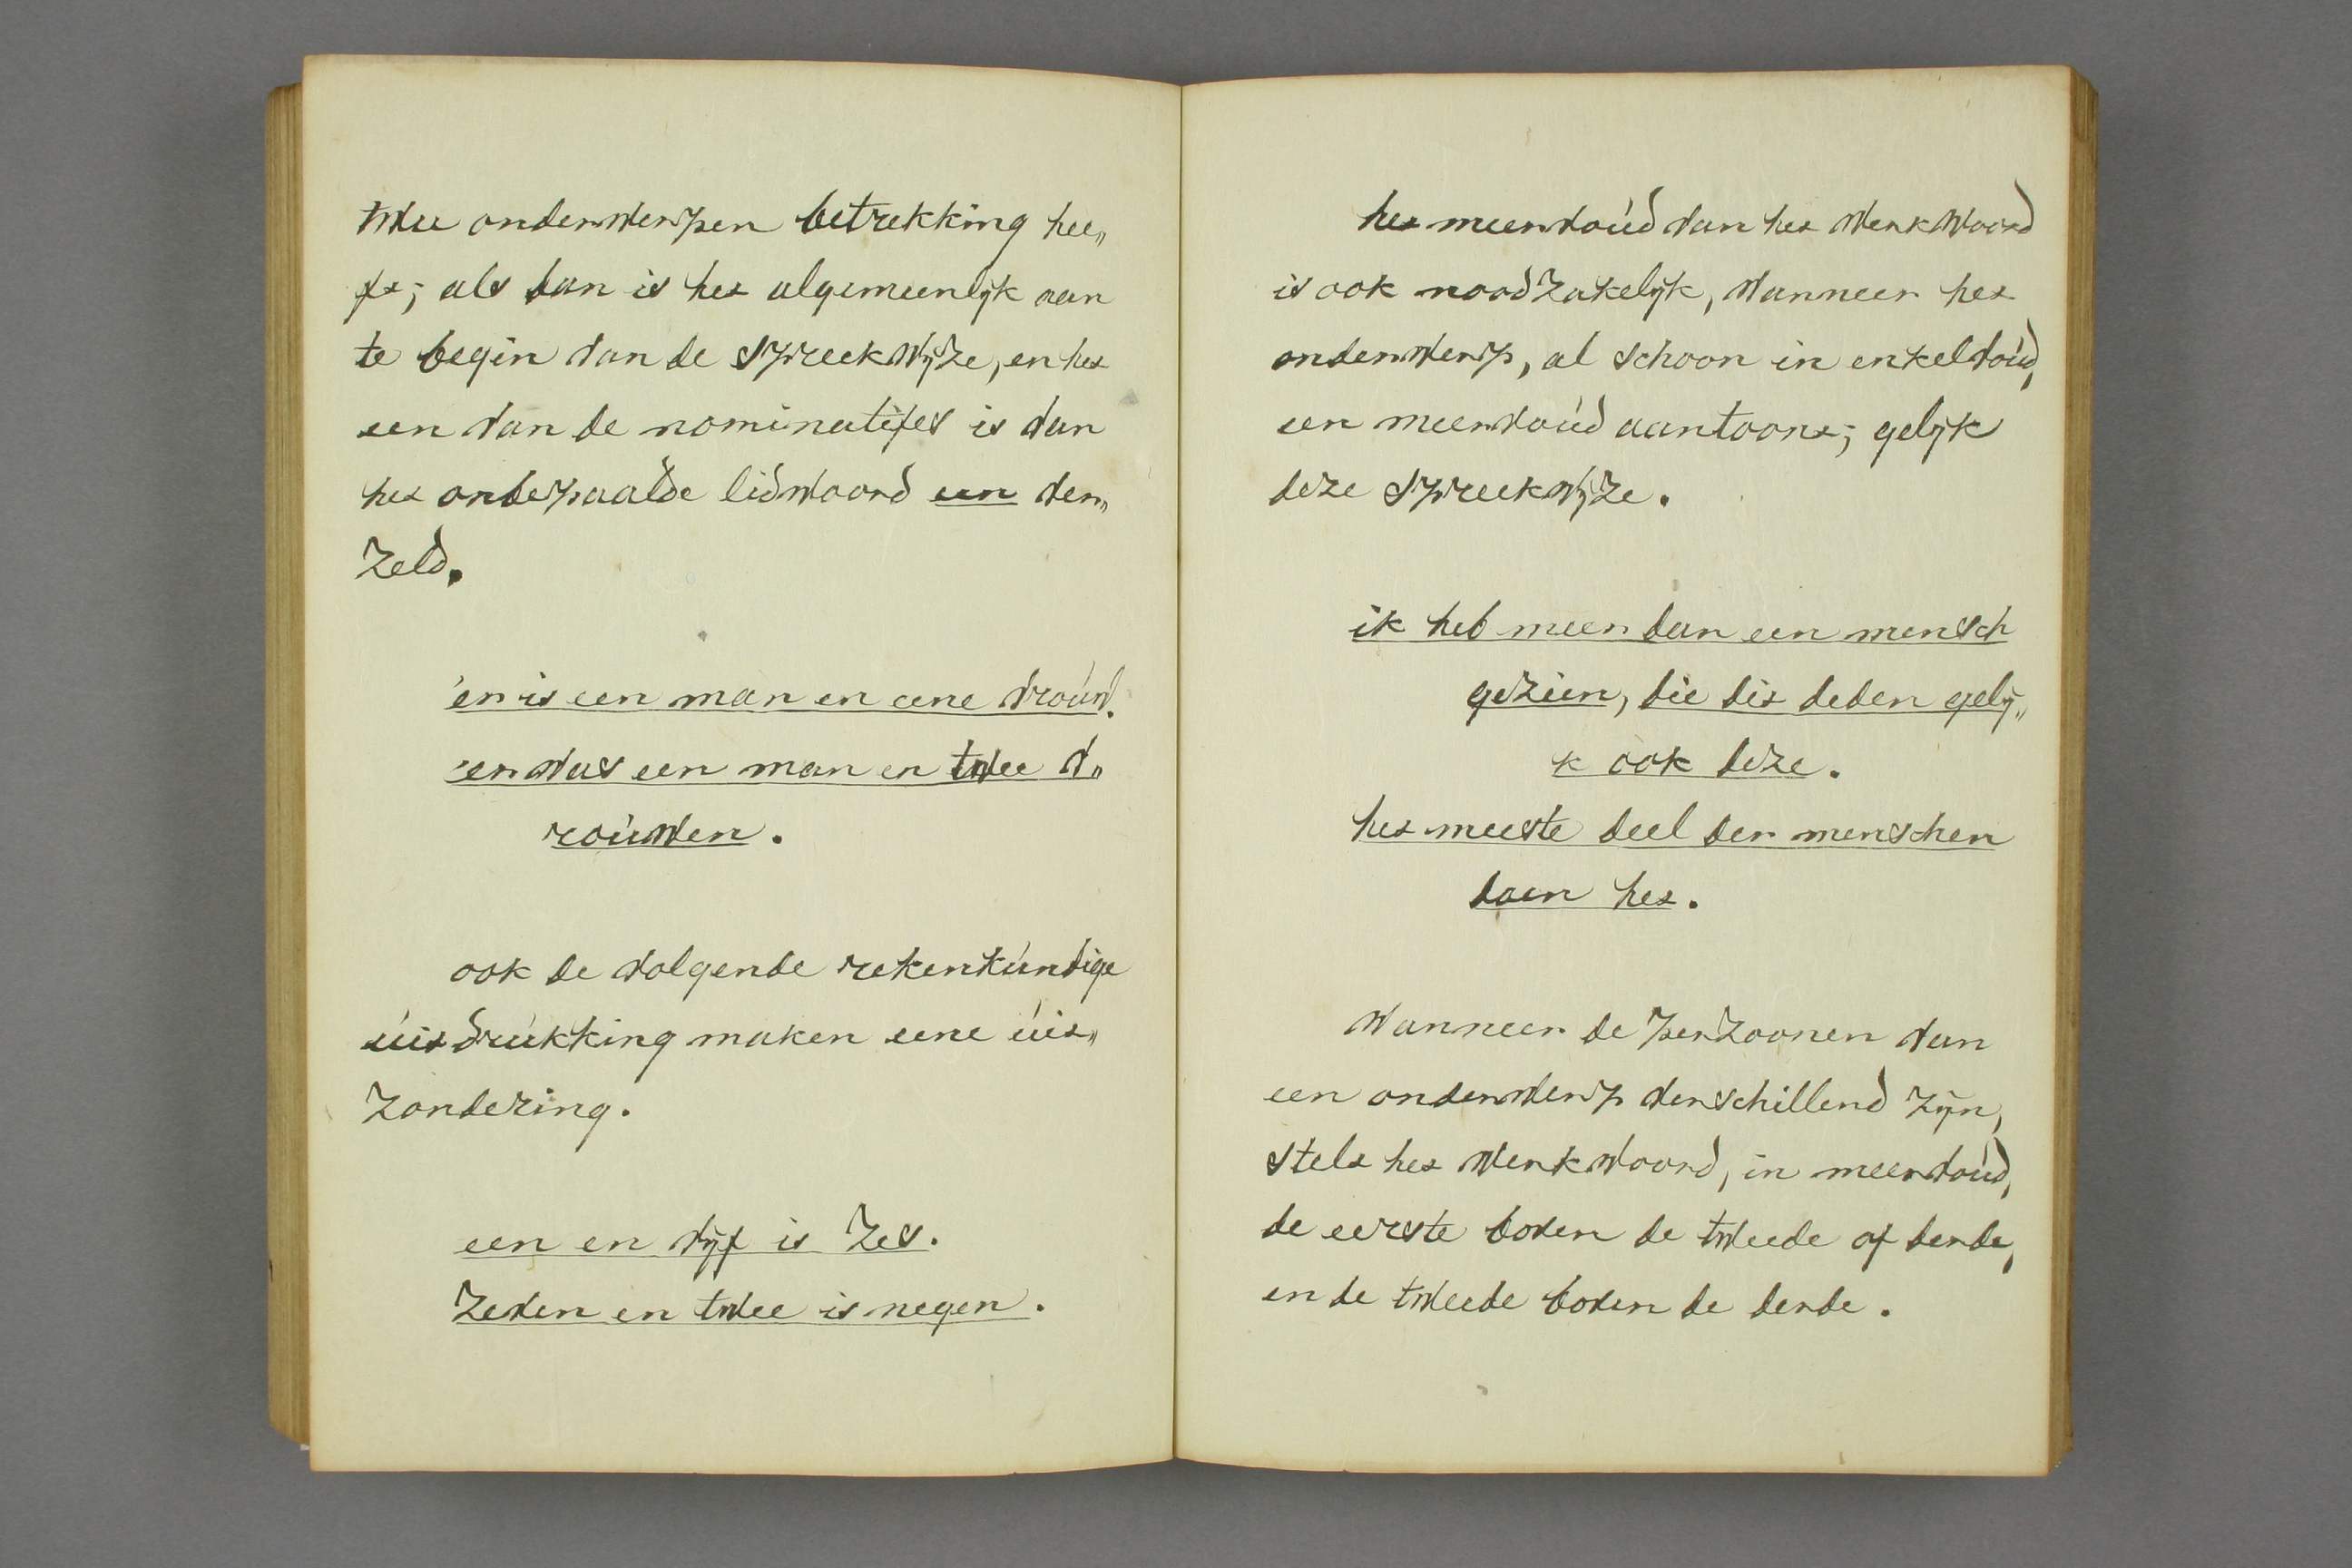 twee onderwerpen betrekking hee„
ft; als dan is het algemeenlijk aan
te begin van de spreekwijze, en het
een van de nominatifes is dan
het onbepaalde lidwoord een ver„
zeld.
'er is een man en eene vrouw.
'er was een man en twee v„
rouwen.
ook de volgende rekenkúndige
úitdrúkking maken eene úit„
zondering.
een en vijf is zes.
zeven en twee is negen.
het meervoúd van het werkwoord
is ook noodzakelijk, wanneer het
onderwerp, al schoon in enkelvoúd,
een meervoúd aantoont; gelijk
deze spreekwijze.
ik heb meer dan een mensch
gezien, die dit deden gelij„
k ook deze.
het meeste deel der menschen
doen het.
wanneer de perzoonen van
een onderwerp verschillend zijn,
stelt het werkwoord, in meervoúd,
de eerste boven de tweede of derde,
en de tweede boven de derde.